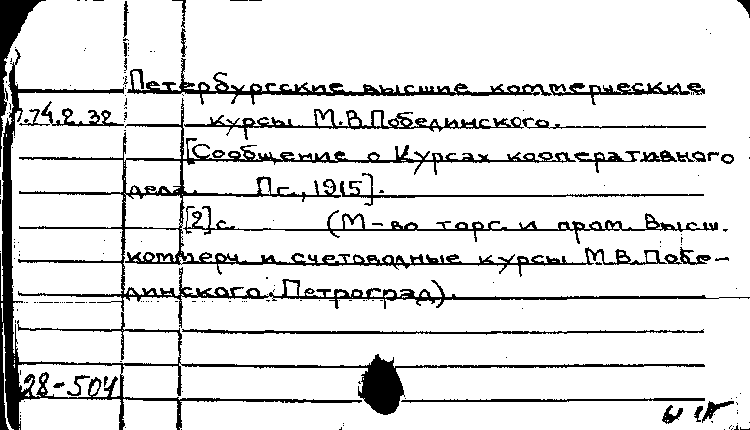 Петербургские высшие коммерческие
курсы М.В.Побединского.
[Сообщение о Курсах кооперативного
дела. Пг., 1915].
[2] с. (М-во торг. и пром. Высш.
коммерч. и счетоводные курсы М.В.Побе-
динского. Петроград).
28-504